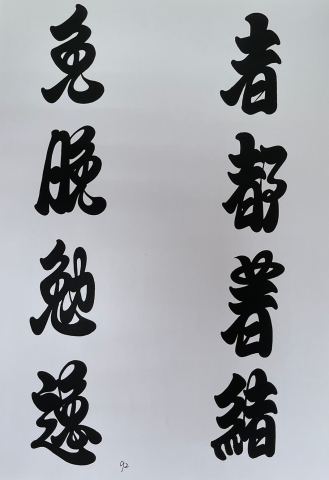 者
都
著
緒
免
晩
勉
逸
92